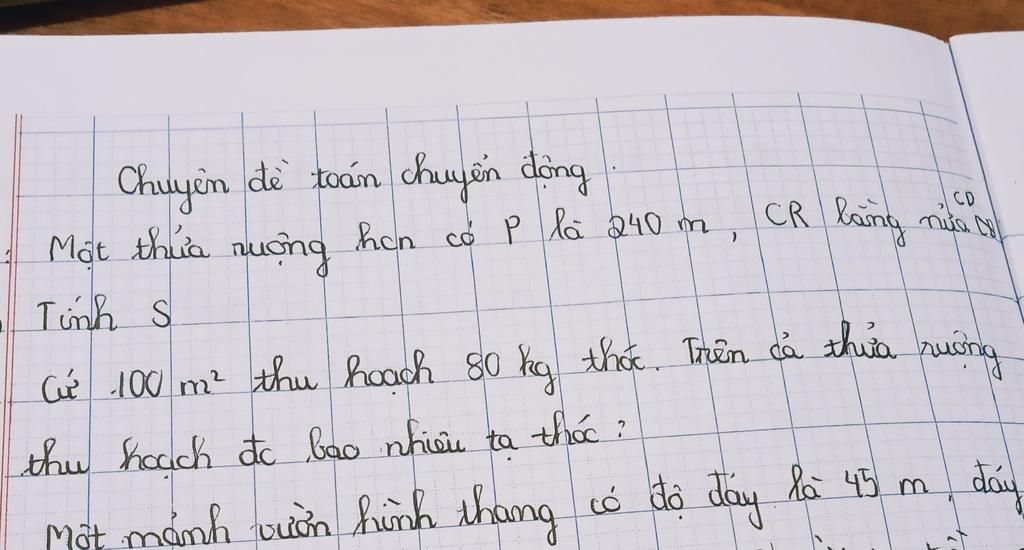 Chuyên đề toán chuyển động.
Một thửa ruộng hcn có P là 240 m, CR bằng nửa CD
Tính S
Cứ 100 m² thu hoạch 80 kg thóc. Trên cả thửa ruộng
thu hoạch đc bao nhiêu tạ thóc?
Một mảnh vườn hình thang có độ đáy là 45 m, đáy